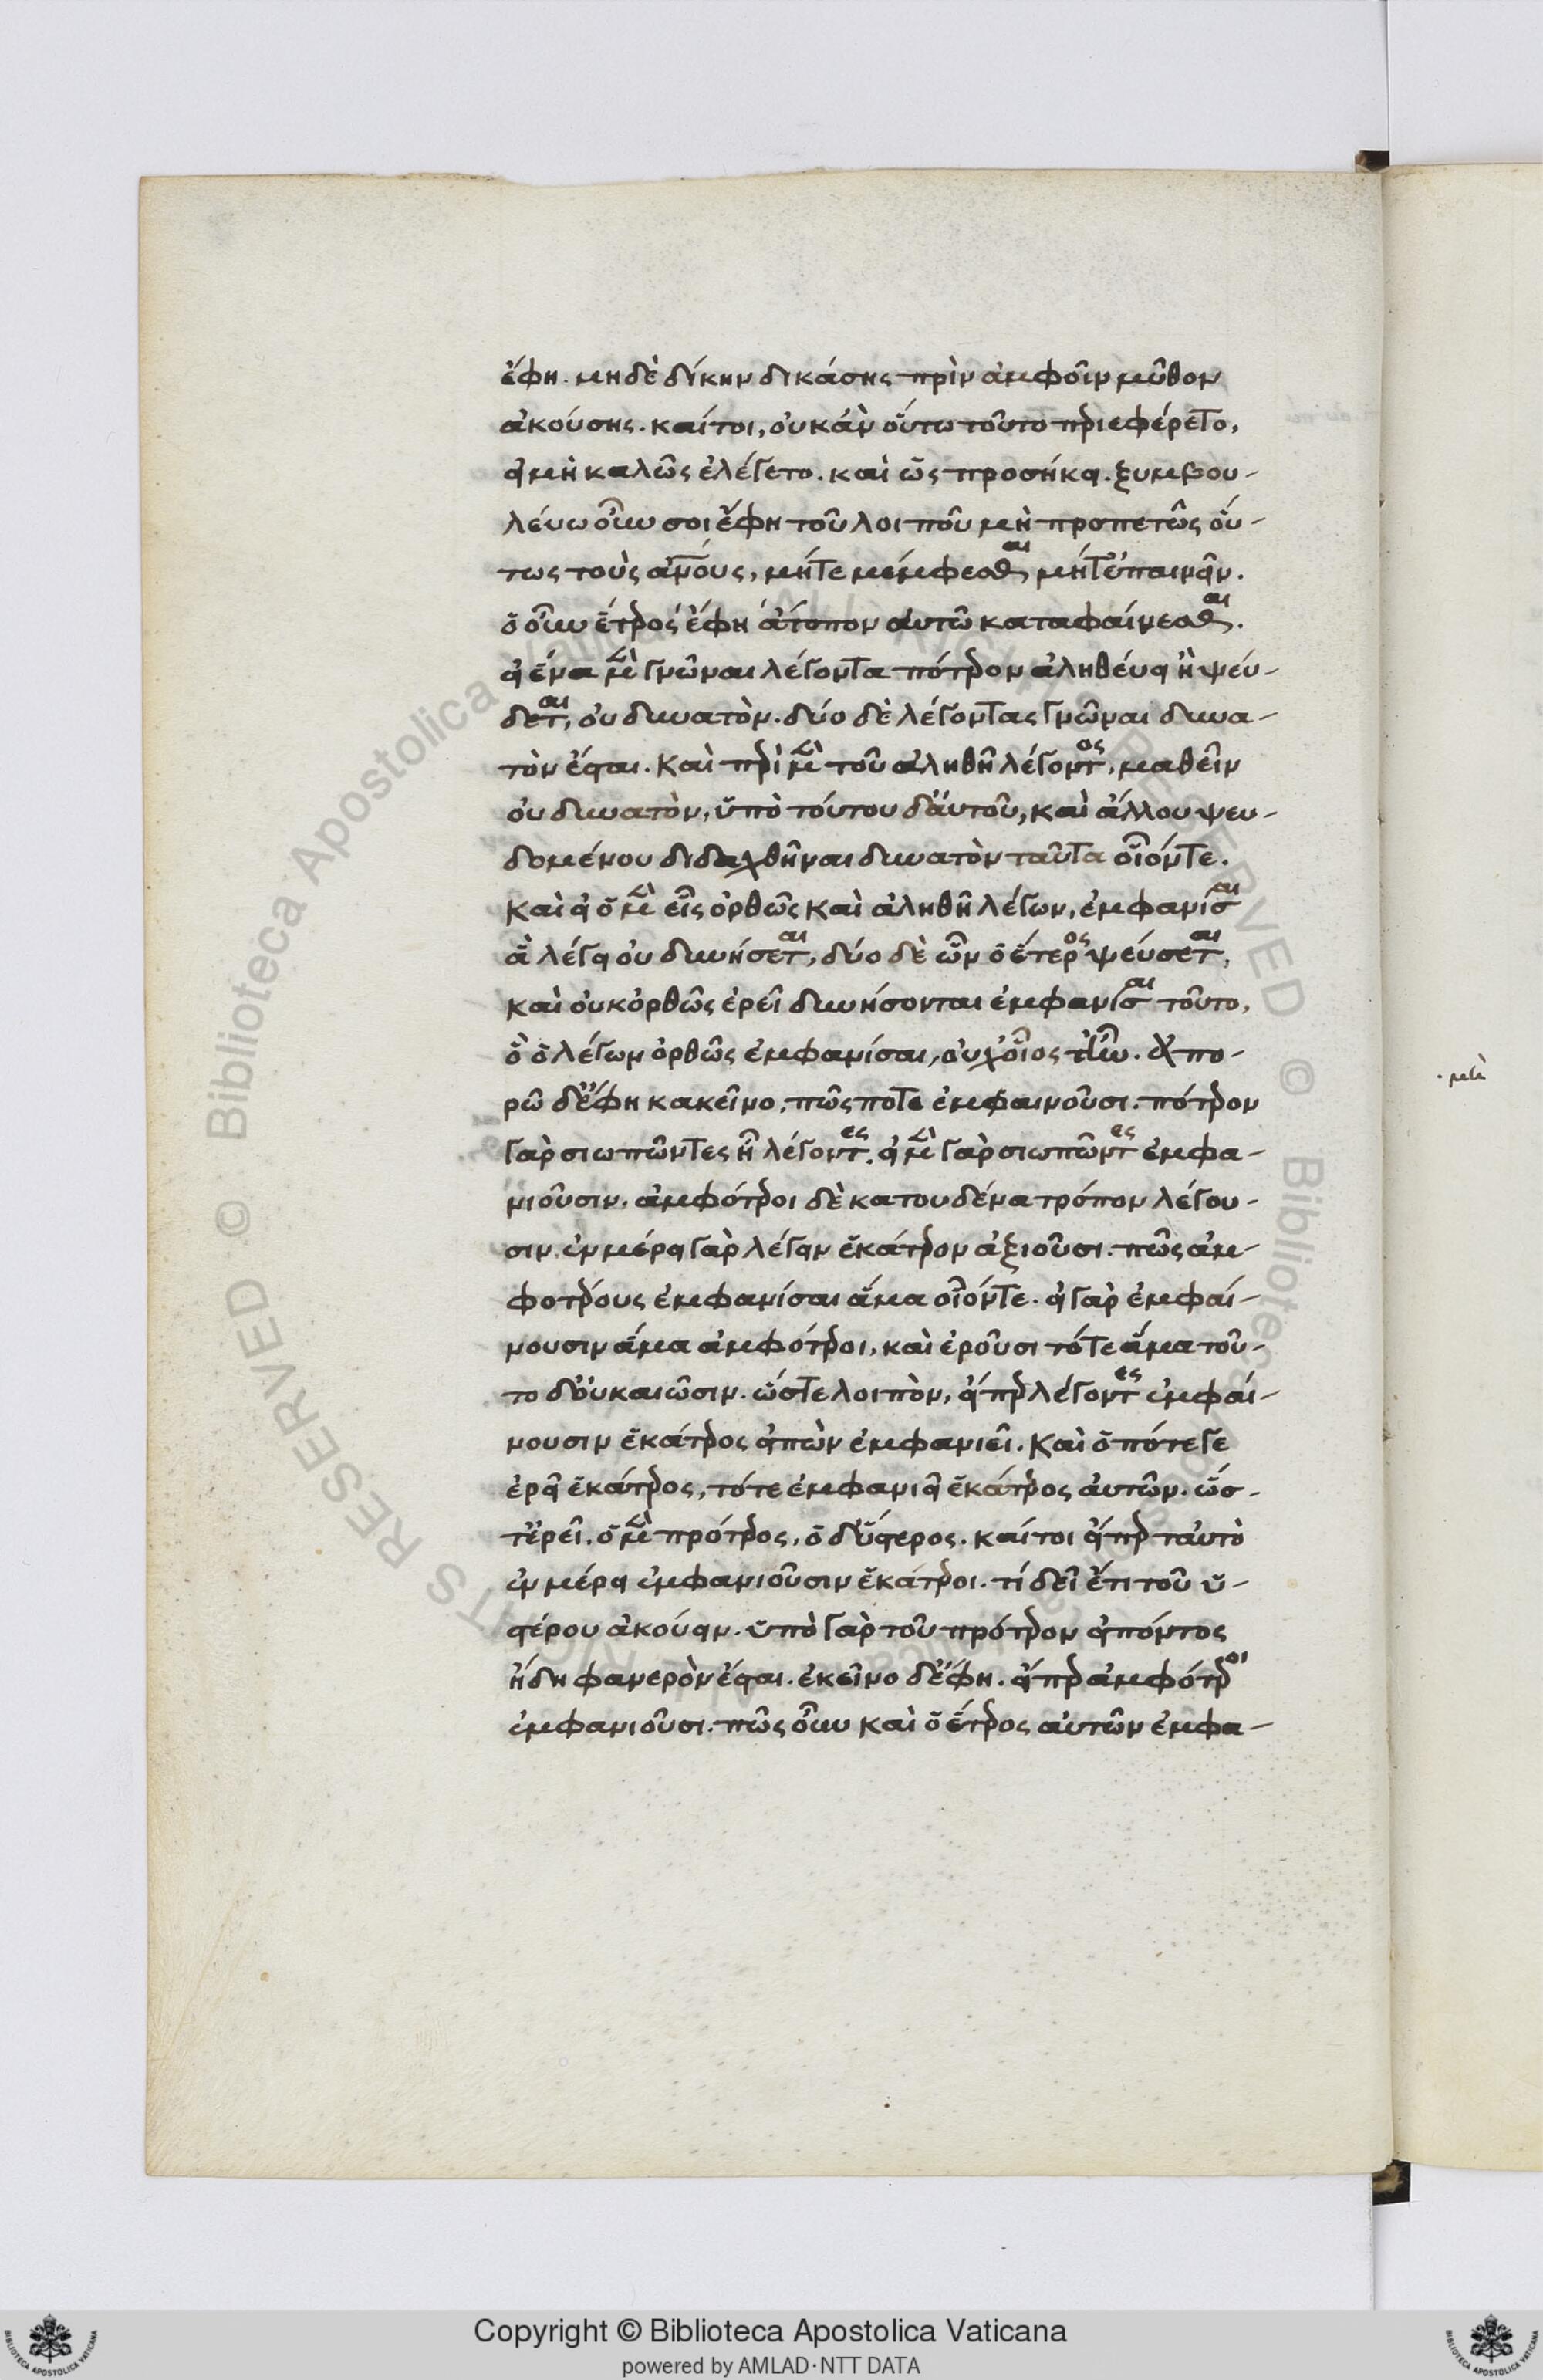 ἔφη. μηδὲ δίκην δικάσης πρὶν ἀμφοῖν μῦθον
ἀκούσης. καίτοι, οὐκἂν οὕτω τοῦτο περιεφέρετο,
εἰ μὴ καλῶς ἐλέγετο. καὶ ὡς προσήκει. ξυμβου-
λεύω οὖν σοι ἔφη τοῦ λοιποῦ μὴ προπετῶς οὕ-
τως τοὺς ἀν̅ο̅υς, μήτε μέμφεσθαι μήτ' ἐπαινεῖν.
ὁ οὖν ἕτερος ἔφη ἄτοπον αὐτῶ καταφαίνεσθαι.
εἰ ἕνα μὲν γνῶναι λέγοντα πότερον ἀληθεύει ἢ ψεύ-
δεται, οὐ δυνατὸν. δύο δὲ λέγοντας γνῶναι δυνα-
τὸν ἔσται. καὶ περὶ μὲν τοῦ ἀληθῆ λέγοντος, μαθεῖν
οὐ δυνατὸν, ὑπὸ τούτου δ' αὐτοῦ, καὶ ἄλλου ψευ-
δομένου διδαχθῆναι δυνατὸν ταῦτα οἷόντε.
καὶ εἰ ὁ μὲν εἷς ὀρθῶς καὶ ἀληθῆ λέγων, ἐμφανίσαι
ἃ λέγει οὐ δυνήσεται, δύο δὲ ὧν ὁ ἕτερος ψεύσεται,
καὶ οὐκ ὀρθῶς ἐρεῖ δυνήσονται ἐμφανίσαι τοῦτο,
ὃ ὁ λέγων ὀρθῶς ἐμφανίσαι, οὐχ οἷός τ' ἦν. ἀπο-
ρῶ δ' ἔφη κακεῖνο, πῶς ποτε ἐμφαινοῦσι. πότερον
γὰρ σιωπῶντες ἢ λέγοντες. εἰ μὲν γὰρ σιωπῶντες ἐμφα-
νιοῦσιν. ἀμφότεροι δὲ κατουδένα τρόπον λέγου-
σιν. ἐν μέρει γὰρ λέγειν ἑκάτερον ἀξιοῦσι. πῶς ἀμ-
φοτέρους ἐμφανίσαι ἅμα οἷόντε. εἰ γὰρ ἐμφαί-
νουσιν ἅμα ἀμφότεροι, καὶ ἐροῦσι τότε ἅμα τοῦ-
το δ' οὐκ αιῶσιν. ὥστε λοιπὸν, εἴπερ λέγοντες ἐμφαί-
νουσιν ἑκάτερος εἰπὼν ἐμφανιεῖ. καὶ ὁπότε γε
ἐρεῖ ἑκάτερος, τότε ἐμφανιεῖ ἑκάτερος αὐτῶν. ὥσ-
τ' ἐρεῖ. ὁ μὲν πρότερος, ὁ δ' ὕστερος. καίτοι εἴπερ ταὐτὸ
ἐν μέρει ἐμφανιοῦσιν ἑκάτεροι. τί δεῖ ἔτι τοῦ ὑ-
στέρου ἀκούειν. ὑπὸ γὰρ τοῦ πρότερον εἰπόντος
ἤδη φανερὸν ἔσται. ἐκεῖνο δ' ἔφη. εἴπερ ἀμφότεροι
ἐμφανιοῦσι. πῶς οὖν καὶ ὁ ἕτερος αὐτῶν ἐμφα-
Copyright © Biblioteca Apostolica Vaticana
powered by AMLAD·NTT DATA